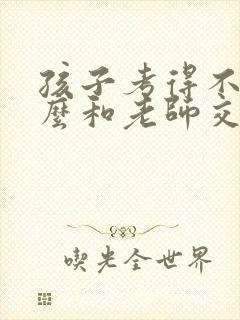 孩子考得不
麼和老師交
喫光全世界